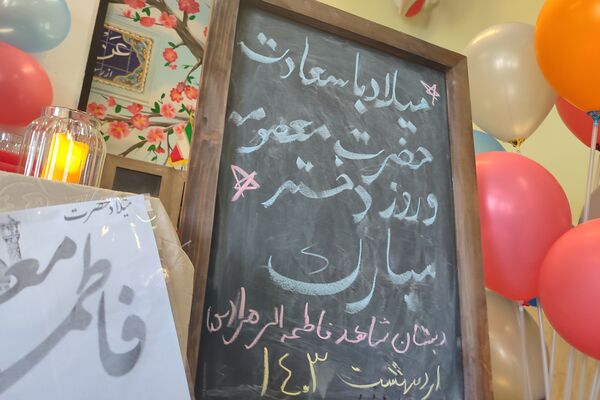 میلاد با سعادت
حضرت معصومه
و روز دختر
مبارک
دبستان شاهد فاطمه الزهرا (س)
اردیبهشت ۱۴۰۳
میلاد حضرت
فاطمه